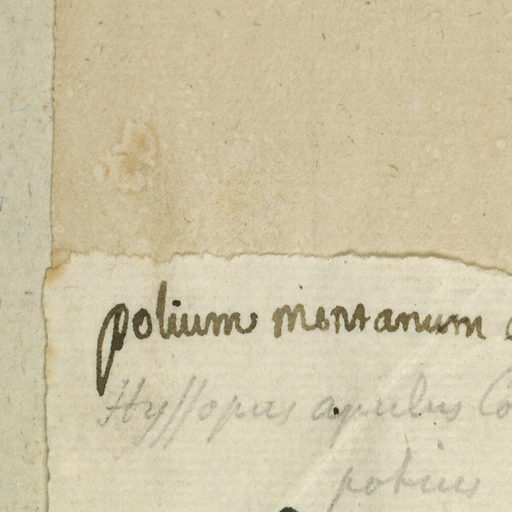 polium montanum
Hyssopus apulus Co
potius